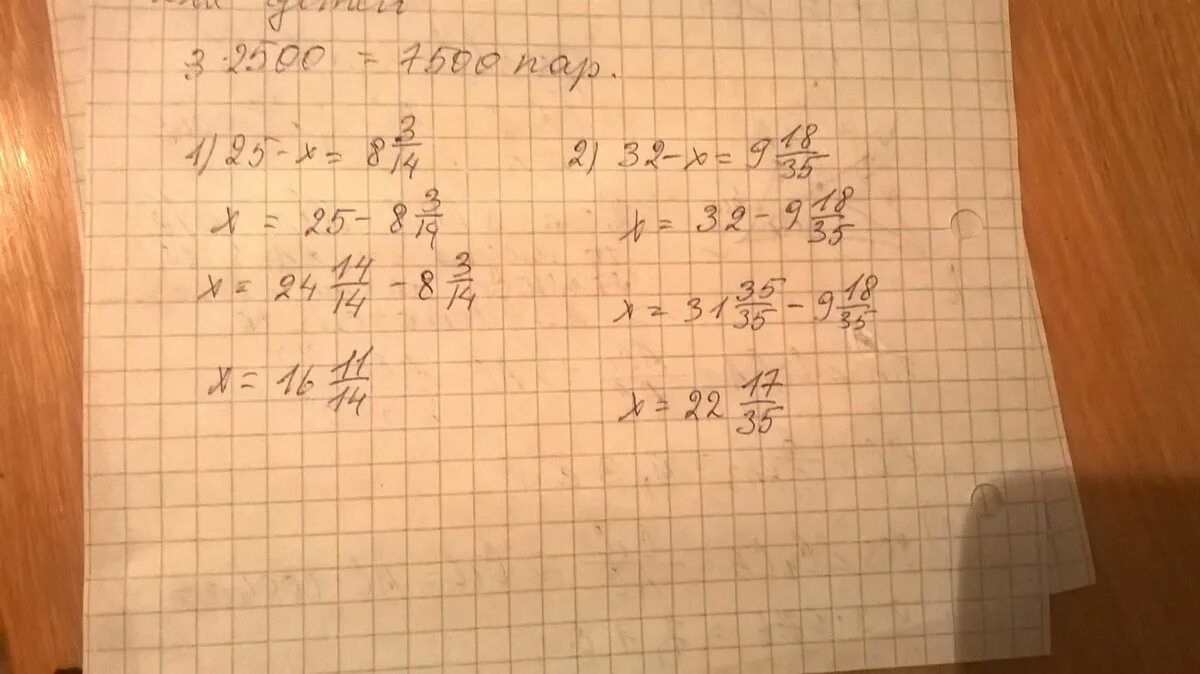 детей
3·2500 = 7500 пар.
1) 25 - x = 8 3/14
x = 25 - 8 3/14
x = 24 14/14 - 8 3/14
x = 16 11/14
2) 32 - x = 9 18/35
x = 32 - 9 18/35
x = 31 35/35 - 9 18/35
x = 22 17/35